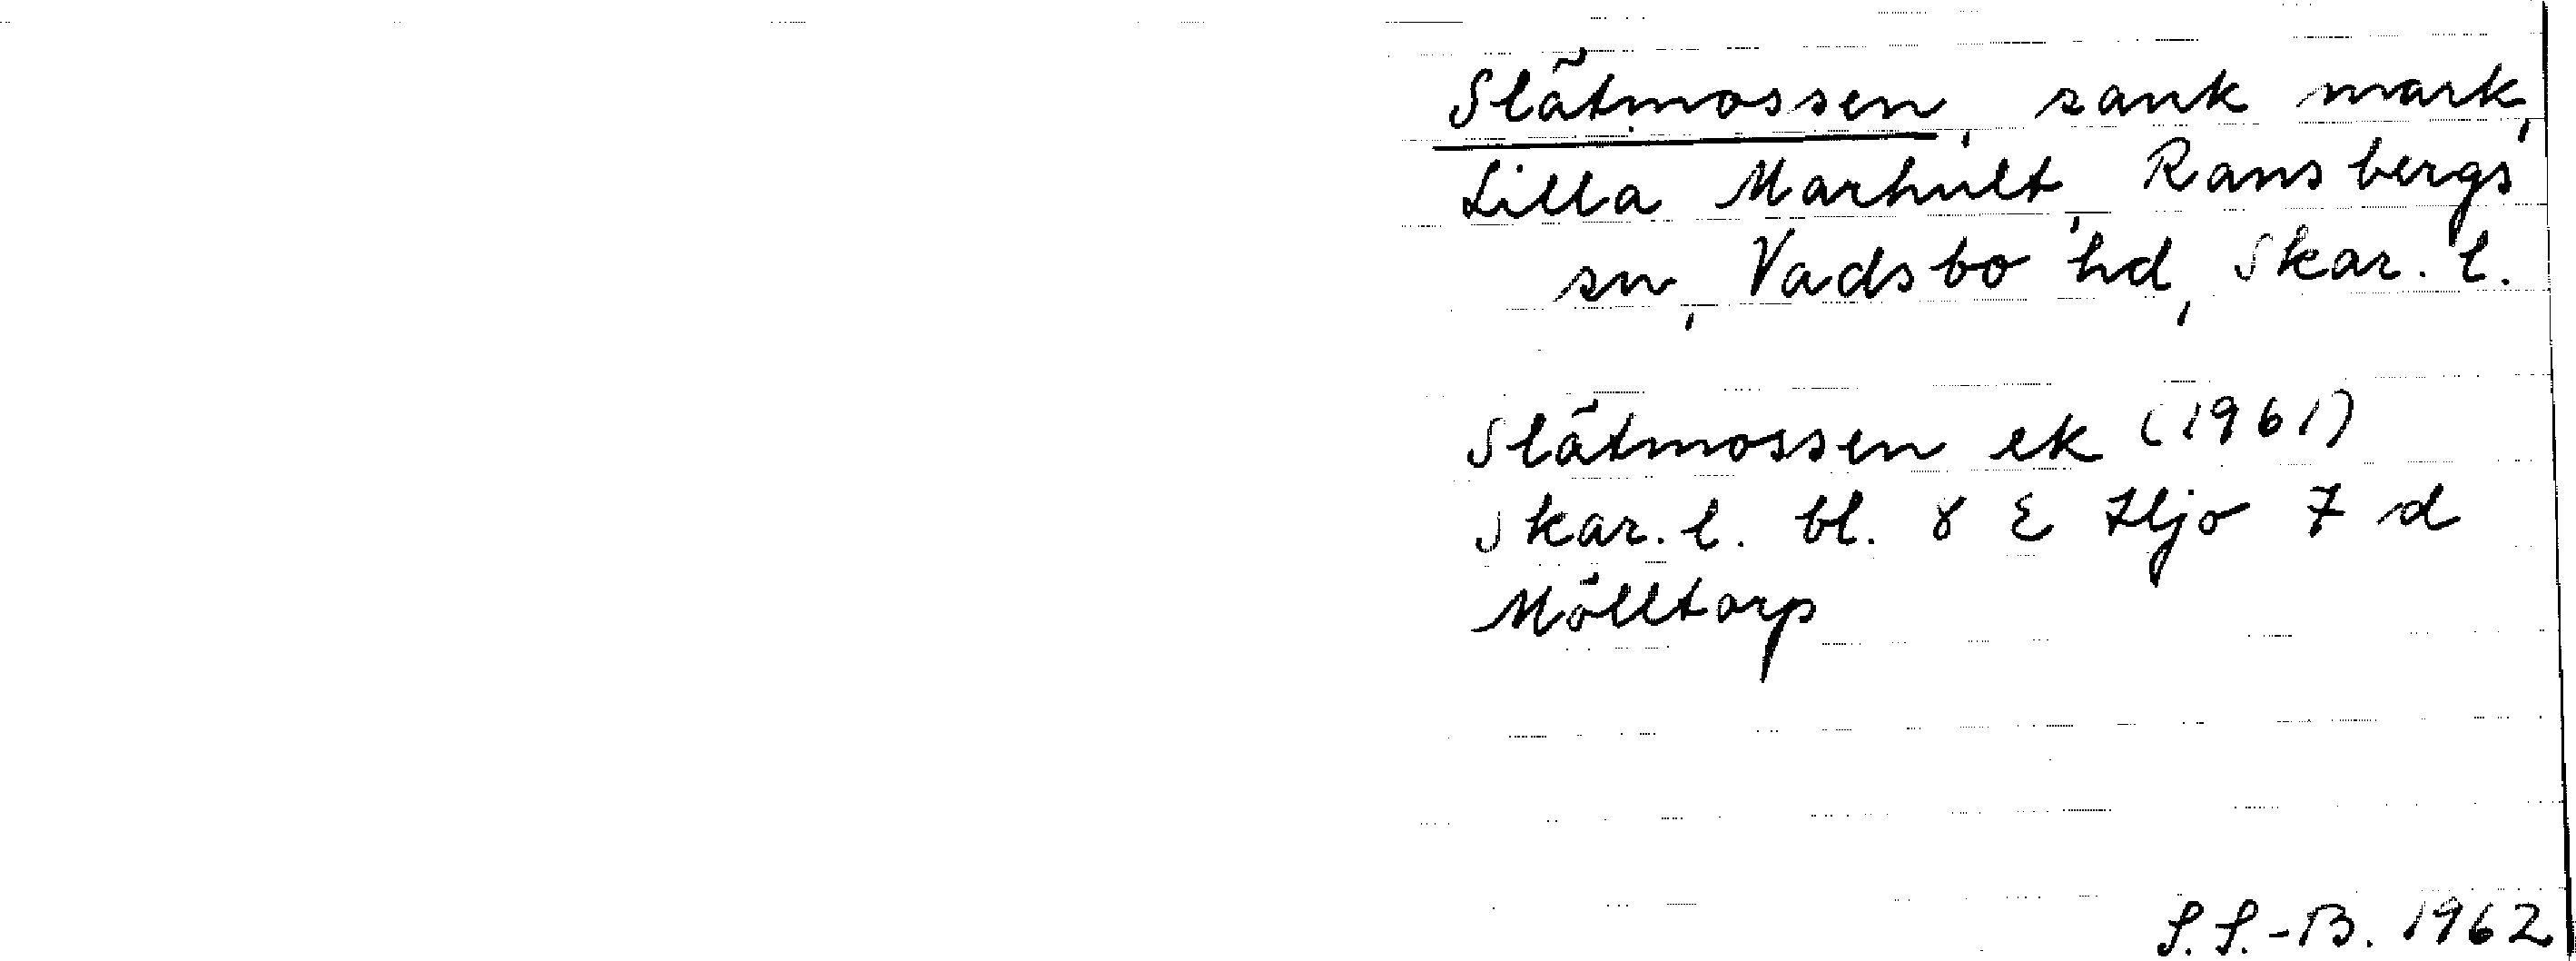 Slätmossen, sank mark,
Lilla Marhult, Ransbergs
sn, Vadsbo hd, Skar. l.
Slätmossen ek (1961)
Skar. l. bl. 8 E Hjo 7 d
Mölltorp
S.S.-B. 1962